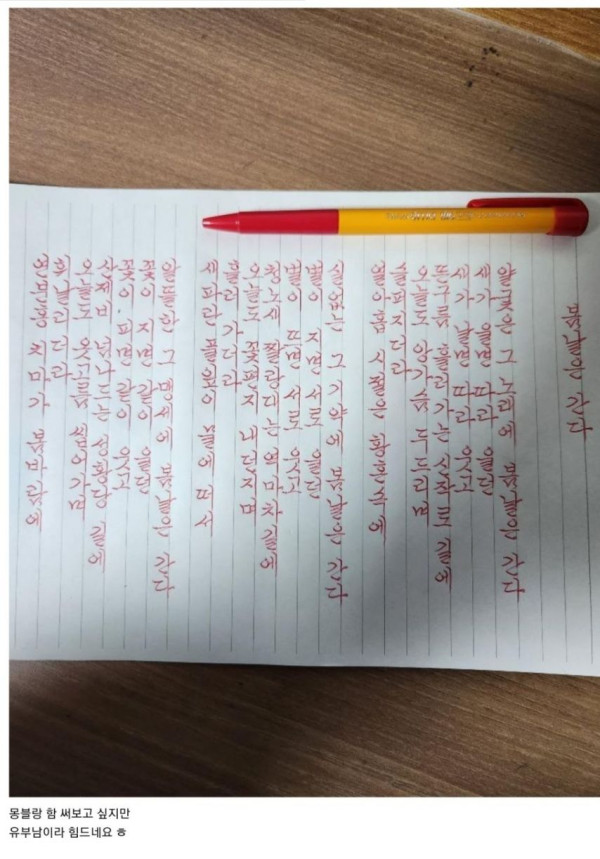 봄날은 간다
연분홍 치마가 봄바람에
휘날리더라
오늘도 옷고름 씹어가며
산제비 넘나드는 성황당 길에
꽃이 피면 같이 웃고
꽃이 지면 같이 울던
알뜰한 그 맹세에 봄날은 간다
새파란 풀잎이 물에 떠서
흘러가더라
오늘도 꽃편지 내던지며
청노새 짤랑대는 역마차 길에
별이 뜨면 서로 웃고
별이 지면 서로 울던
실없는 그 기약에 봄날은 간다
열아홉 시절은 황혼속에
슬퍼지더라
오늘도 앙가슴 두드리며
뜬구름 흘러가는 신작로 길에
새가 날면 따라 웃고
새가 울면 따라 울던
얄궂은 그 노래에 봄날은 간다
몽블랑 함 써보고 싶지만
유부남이라 힘드네요 ㅎ